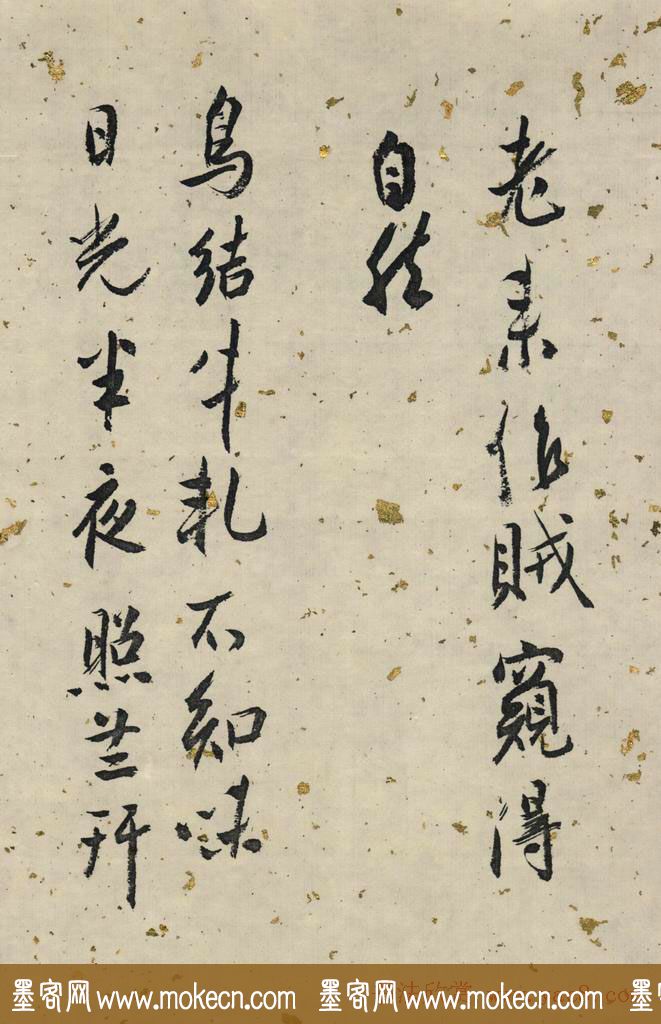 老来作賊窺得
自然
鸟結牛轧不知味
日光半夜照轩
墨客网 www.mokecn.com 墨客网 www.mokecn.com